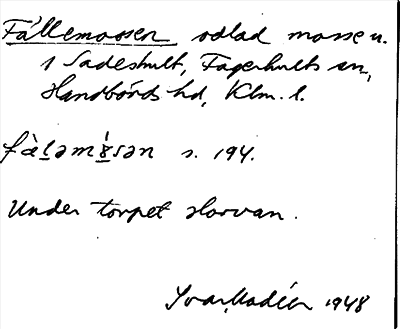 Fällemossen odlad mosse u.
i Sadeshult, Fagerhults sn,
Handbörds hd, Klm. l.
fàləmósən s. 194.
Under torpet Horvan.
Ivar Modéer 1948